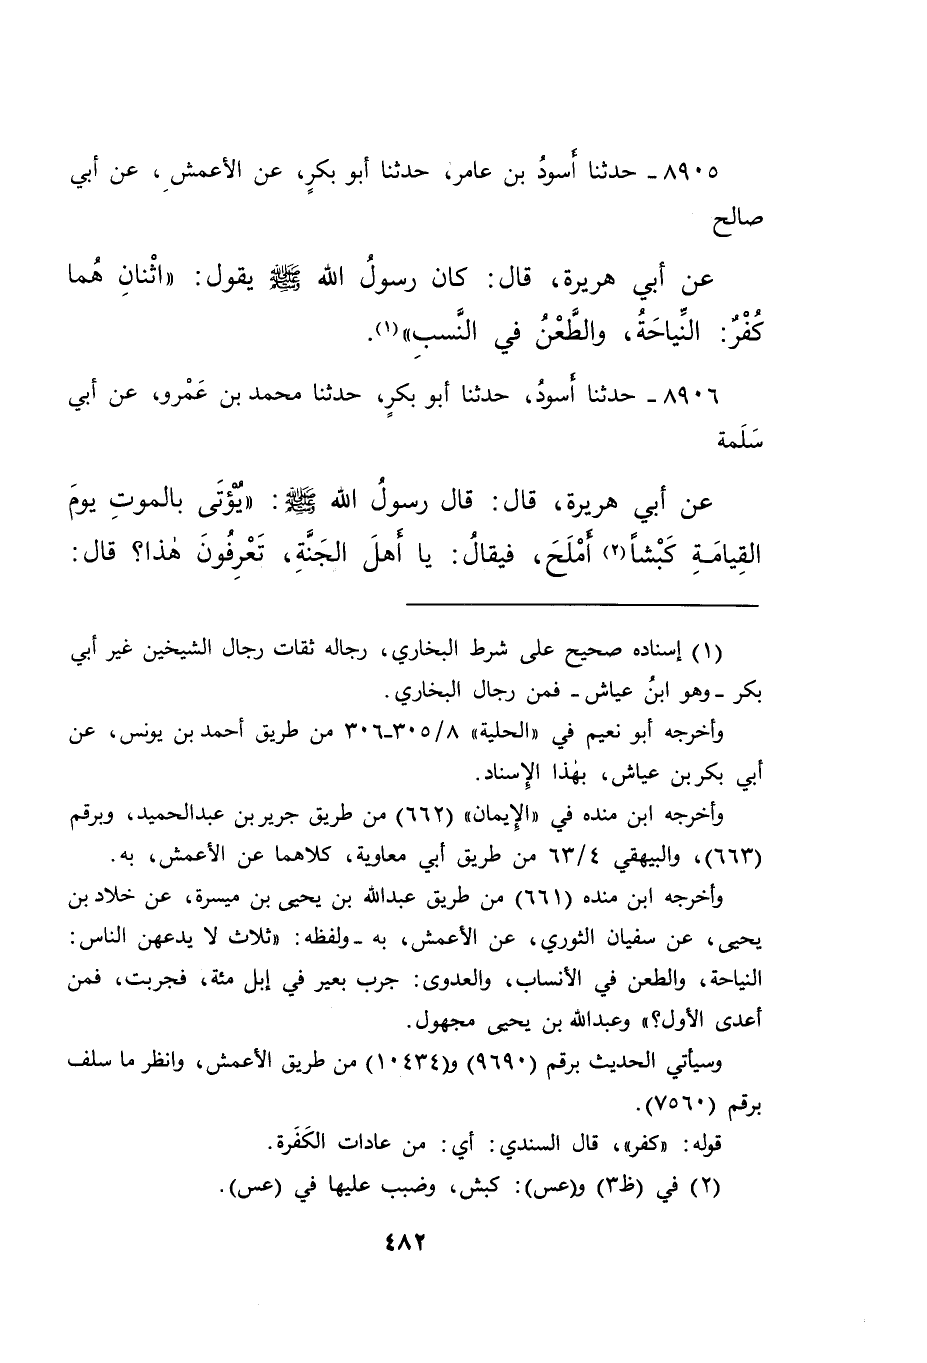 ٨٩٠٥ ـ حدثنا أَسودُ بن عامر، حدثنا أبو بكرٍ، عن الأعمشِ، عن أبي
صالح
عن أبي هريرة، قال: كان رسولُ الله ﷺ يقول: «اثْنانِ هُما
كُفْرٌ: النِّياحَةُ، والطَّعْنُ في النَّسبِ»(١).
٨٩٠٦ ـ حدثنا أَسودُ، حدثنا أبو بكرٍ، حدثنا محمد بن عَمْرو، عن أبي
سَلَمة
عن أبي هريرة، قال: قال رسولُ الله ﷺ: «يُؤْتَى بالموتِ يومَ
القِيامَةِ كَبْشاً(٢) أَمْلَحَ، فيقالُ: يا أَهلَ الجَنَّةِ، تَعْرِفُونَ هٰذا؟ قال:
(١) إسناده صحيح على شرط البخاري، رجاله ثقات رجال الشيخين غير أبي
بكر ـ وهو ابنُ عياش ـ فمن رجال البخاري.
وأخرجه أبو نعيم في «الحلية» ٣٠٥/٨ـ٣٠٦ من طريق أحمد بن يونس، عن
أبي بكر بن عياش، بهٰذا الإِسناد.
وأخرجه ابن منده في «الإِيمان» (٦٦٢) من طريق جرير بن عبدالحميد، وبرقم
(٦٦٣)، والبيهقي ٦٣/٤ من طريق أبي معاوية، كلاهما عن الأعمش، به.
وأخرجه ابن منده (٦٦١) من طريق عبدالله بن يحيى بن ميسرة، عن خلاد بن
يحيى، عن سفيان الثوري، عن الأعمش، به ـ ولفظه: «ثلاث لا يدعهن الناس:
النياحة، والطعن في الأنساب، والعدوى: جرب بعير في إبل مئة، فجربت، فمن
أعدى الأول؟» وعبدالله بن يحيى مجهول.
وسيأتي الحديث برقم (٩٦٩٠) و(١٠٤٣٤) من طريق الأعمش، وانظر ما سلف
برقم (٧٥٦٠).
قوله: «كفر»، قال السندي: أي: من عادات الكَفَرة.
(٢) في (ظ٣) و(عس): كبش، وضبب عليها في (عس).
٤٨٢